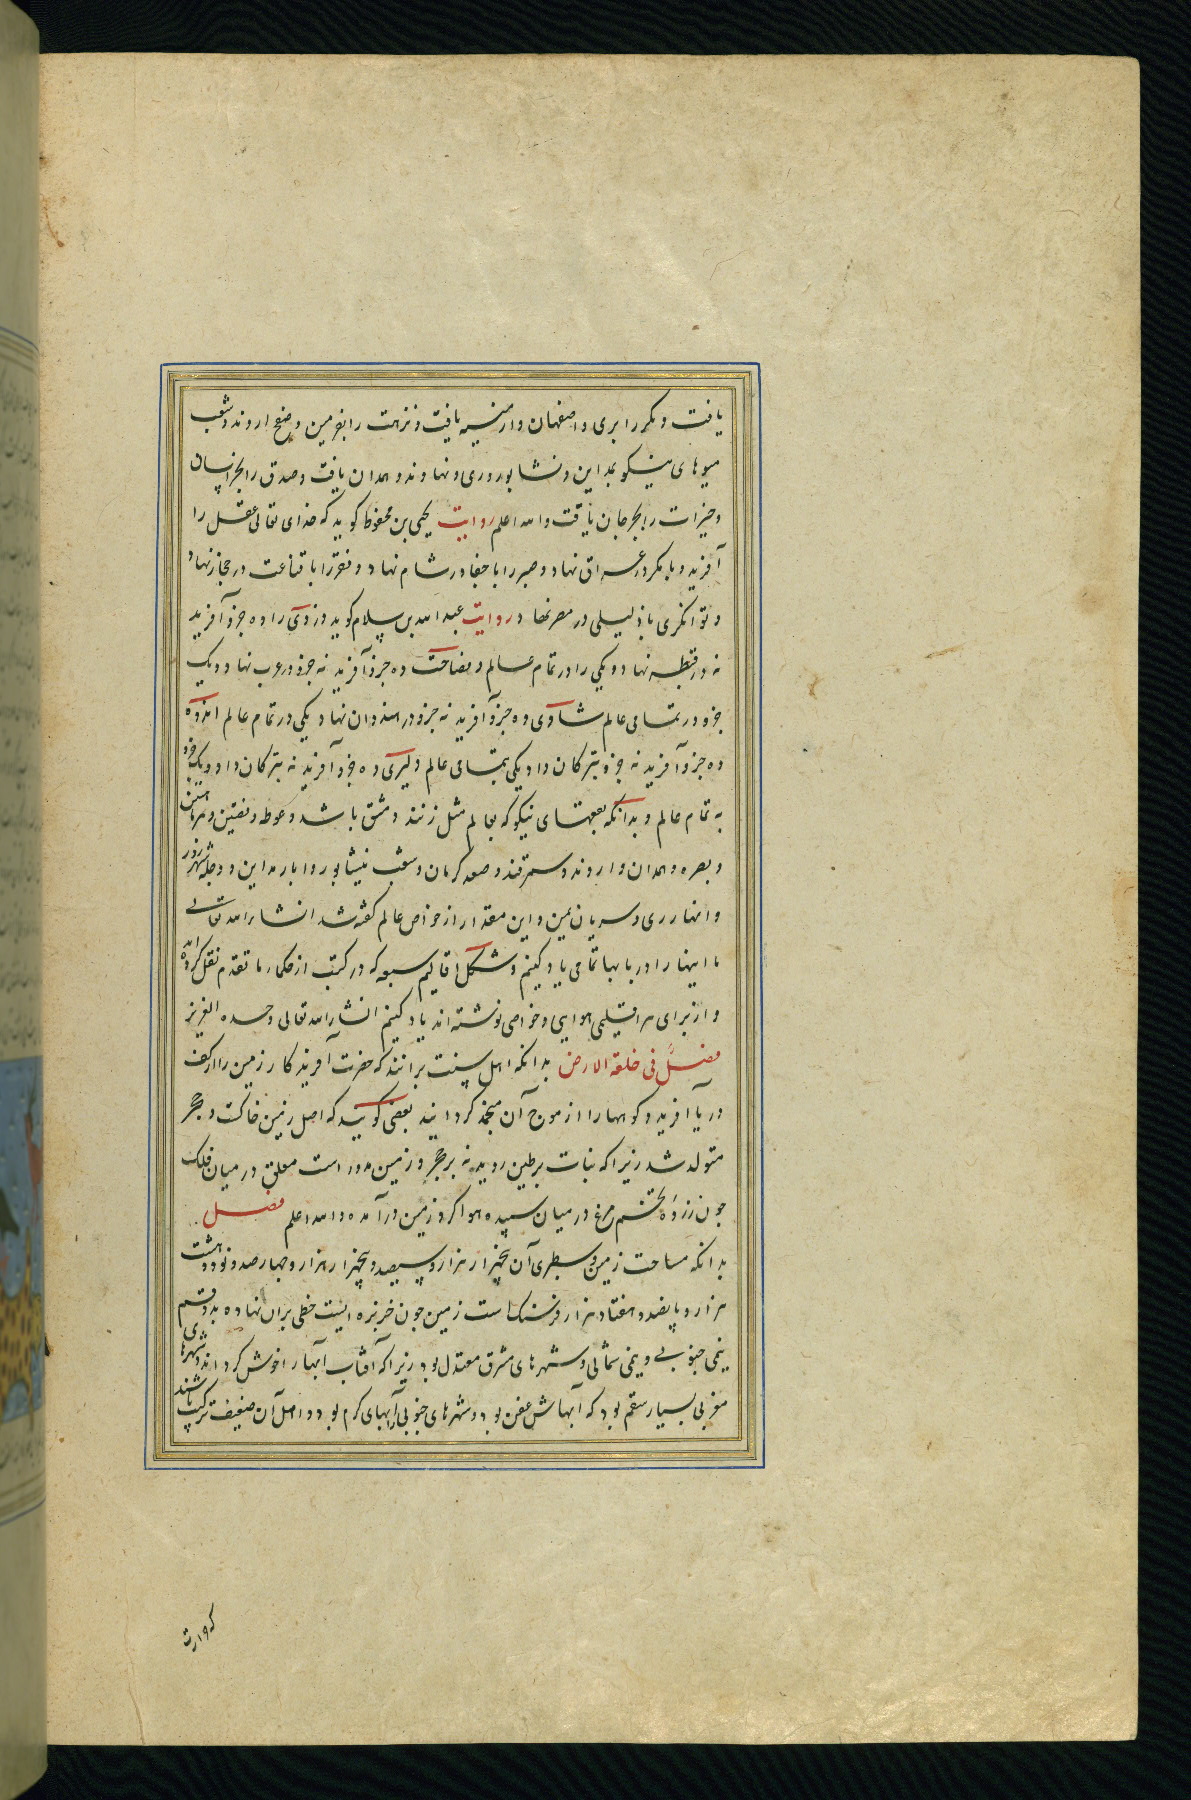 یافت و مکر را بری و اصفهان و ارمنیه یافت و نزهت را بغرمین و صنج اروند و شعب
میوهای نیکو بمداین و نشابور و ری و نهاوند و همدان یافت و صدق را بخراسان
و خیرات را بجرجان یافت والله اعلم روایت یحیی بن محفوظ کوید که خدای تعالی عقل را
آفرید و با مکر در عراق نهاد و صبر را با جفا در شام نهاد و فقر را با قناعت در حجاز نهاد
و توانکری با ذلیلی در مصر نهاد روایت عبدالله بن سلام کوید دزدی را ده جزو آفرید
نه در قبطه نهاد و یکی را در تمام عالم و فصاحت ده جزو آفرید نه جزو در عرب نهاد و یک
جزو در تمامی عالم شادی ده جزو آفرید نه جزو در هندوان نهاد یکی در تمام عالم اندوه
ده جزو آفرید نه جزو بترکان داد یکی بتمامی عالم دلیری ده جزو آفرید نه بترکان داد و یک جزو
به تمام عالم و بدانکه بقعتهای نیکو که بعالم مثل زنند دمشق باشد و غوطه و نصیبین
و بصره و همدان و اروند و سمرقند و صغد کرمان و شعب نیشابور و ابار مداین و دجله شهر زور
و انهار ری و سریان یمن و این مقدار از خواص عالم کفته شد انشاءالله تعالی
ما اینها را در بابها تمامی یاد کنیم و شکل اقالیم سبعه که در کتب از حکماء ما تقدم نقل کرده اند
و از برای هر اقلیمی هوایی و خواصی نوشته اند یاد کنیم انشاءالله تعالی وحده العزیز
فصلٌ فی خلقة الارض بدانکه اهل سنت برانند که حضرت آفریدکار زمین را از کف
دریا آفرید و کوهها را از موج آن منجمد کردانید بعضی کویند که اصل زمین خاکست و حجر
متولد شد زیرا که نبات بر طین روید نه بر حجر و زمین مدور است معلق در میان فلک
چون زرده تخم مرغ در میان سپیده هوا کرد زمین در آمده والله اعلم فصل
بدانکه مساحت زمین و سطبری آن پنجهزار هزار و سیصد و پنجهزار هزار و چهارصد و نود و هشت
هزار و پانصد و هفتاد هزار فرسنک است زمین چون خربزه ایست خطی بران نهاده بدو قسم
نیمی جنوبی و نیمی شمالی و شهرهای مشرق معتدل بود زیرا که آفتاب آبها را خوش کرداند و شهرهای
مغربی بسیار سقم بود که آبهاش عفن بود و شهرهای جنوبی را آبهای کرم بود و اهل آن ضعیف ترکیب باشند